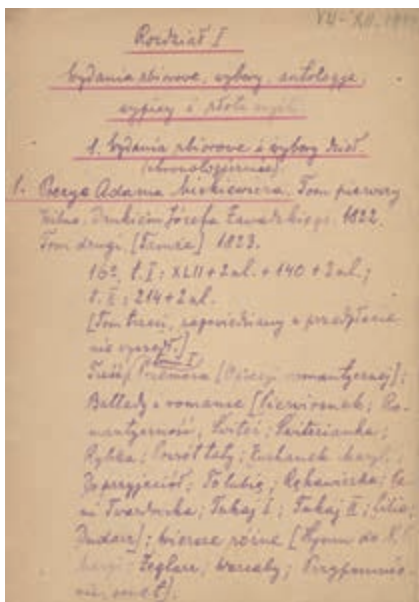 VII-XII.
Rozdział I
Wydania zbiorowe, wybory, antologje,
wypisy i złote myśli
1. Wydania zbiorowe i wybory dzieł
(chronologicznie)
1. Poezye Adama Mickiewicza. Tom pierwszy
Wilno. Drukiem Józefa Zawadzkiego. 1822.
Tom drugi. [Tamże] 1823.
16º, t. I: XLII + 2 nl. + 140 + 2 nl.;
t. II: 214 + 2 nl.
[Tom trzeci, zapowiedziany w przedpłacie
nie wyszedł.]
Treść tomu I: Przemowa [O poezji romantycznej];
Ballady i romanse [Pierwiosnek; Ro-
mantyczność; Świteź; Świtezianka;
Rybka; Powrót taty; Kurhanek Maryli;
Do przyjaciół; To lubię; Rękawiczka; Pa-
ni Twardowska; Tukaj I; Tukaj II; Lilie;
Dudarz]; Wiersze różne [Hymn do N. P.
Żeglarz; Warcaby; Przypomnie-
nie, sonet].